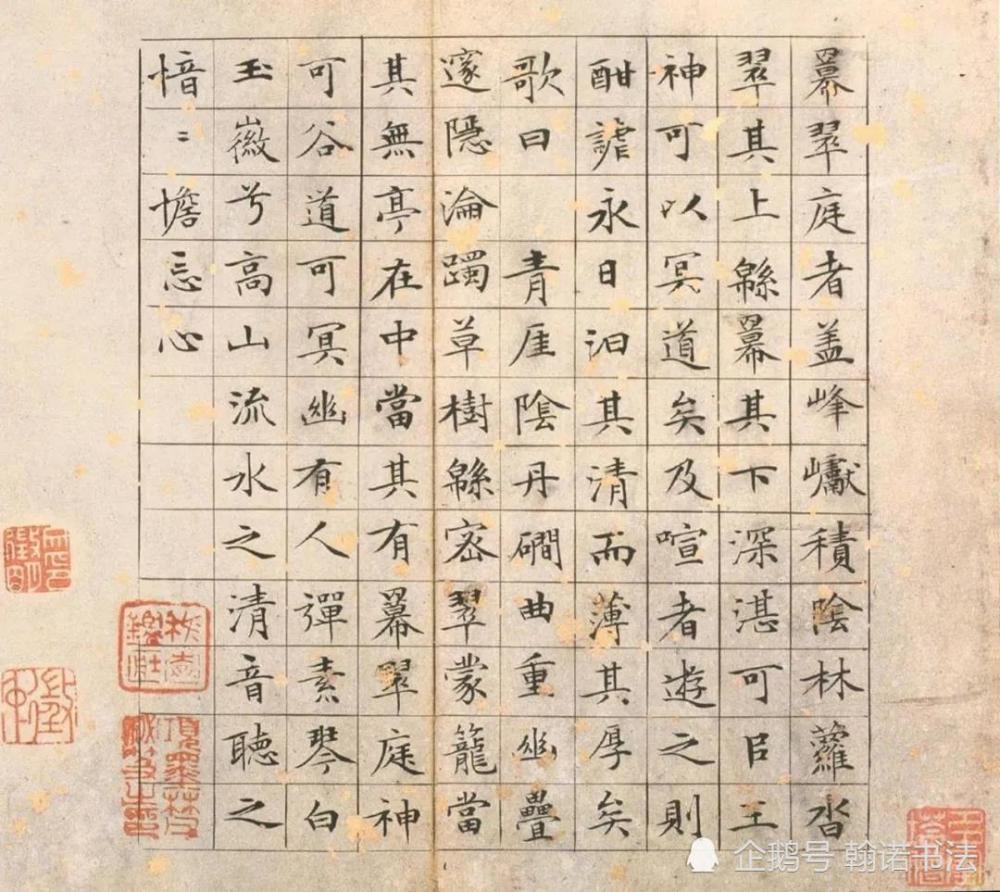 羃翠庭者盖峰巘積陰林蘿沓
翠其上緜羃其下深湛可㠯王
神可以冥道矣及喧者遊之則
酣謔永日汨其清而薄其厚矣
歌曰 青厓陰丹磵曲重幽疊
邃隱淪躅草樹緜密翠蒙籠當
其無亭在中當其有羃翠庭神
可谷道可冥幽有人彈素琴白
玉徽兮高山流水之清音聽之
愔〻憺忘心
企鹅号 翰诺书法